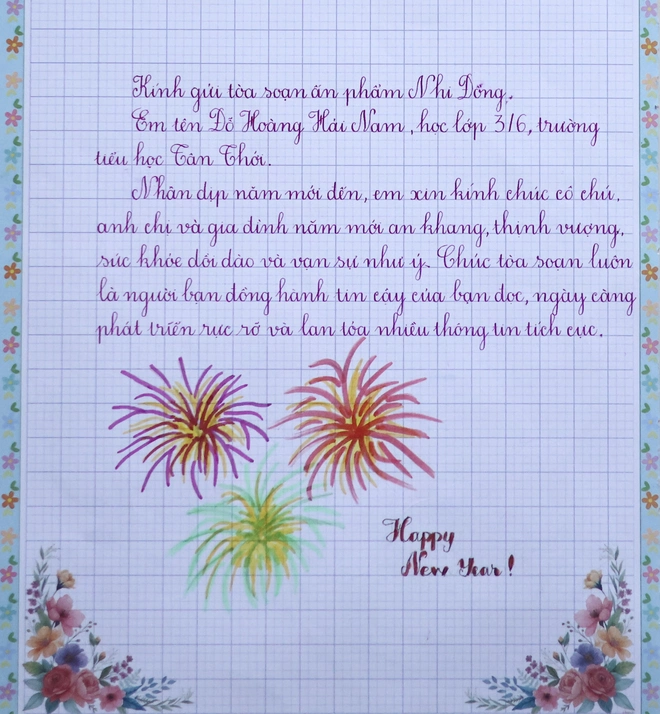 Kính gửi tòa soạn ấn phẩm Nhi Đồng.
Em tên Đỗ Hoàng Hải Nam, học lớp 3/6, trường
tiểu học Tân Thới.
Nhân dịp năm mới đến, em xin kính chúc cô chú,
anh chị và gia đình năm mới an khang, thịnh vượng,
sức khỏe dồi dào và vạn sự như ý. Chúc tòa soạn luôn
là người bạn đồng hành tin cậy của bạn đọc, ngày càng
phát triển rực rỡ và lan tỏa nhiều thông tin tích cực.
Happy
New Year!